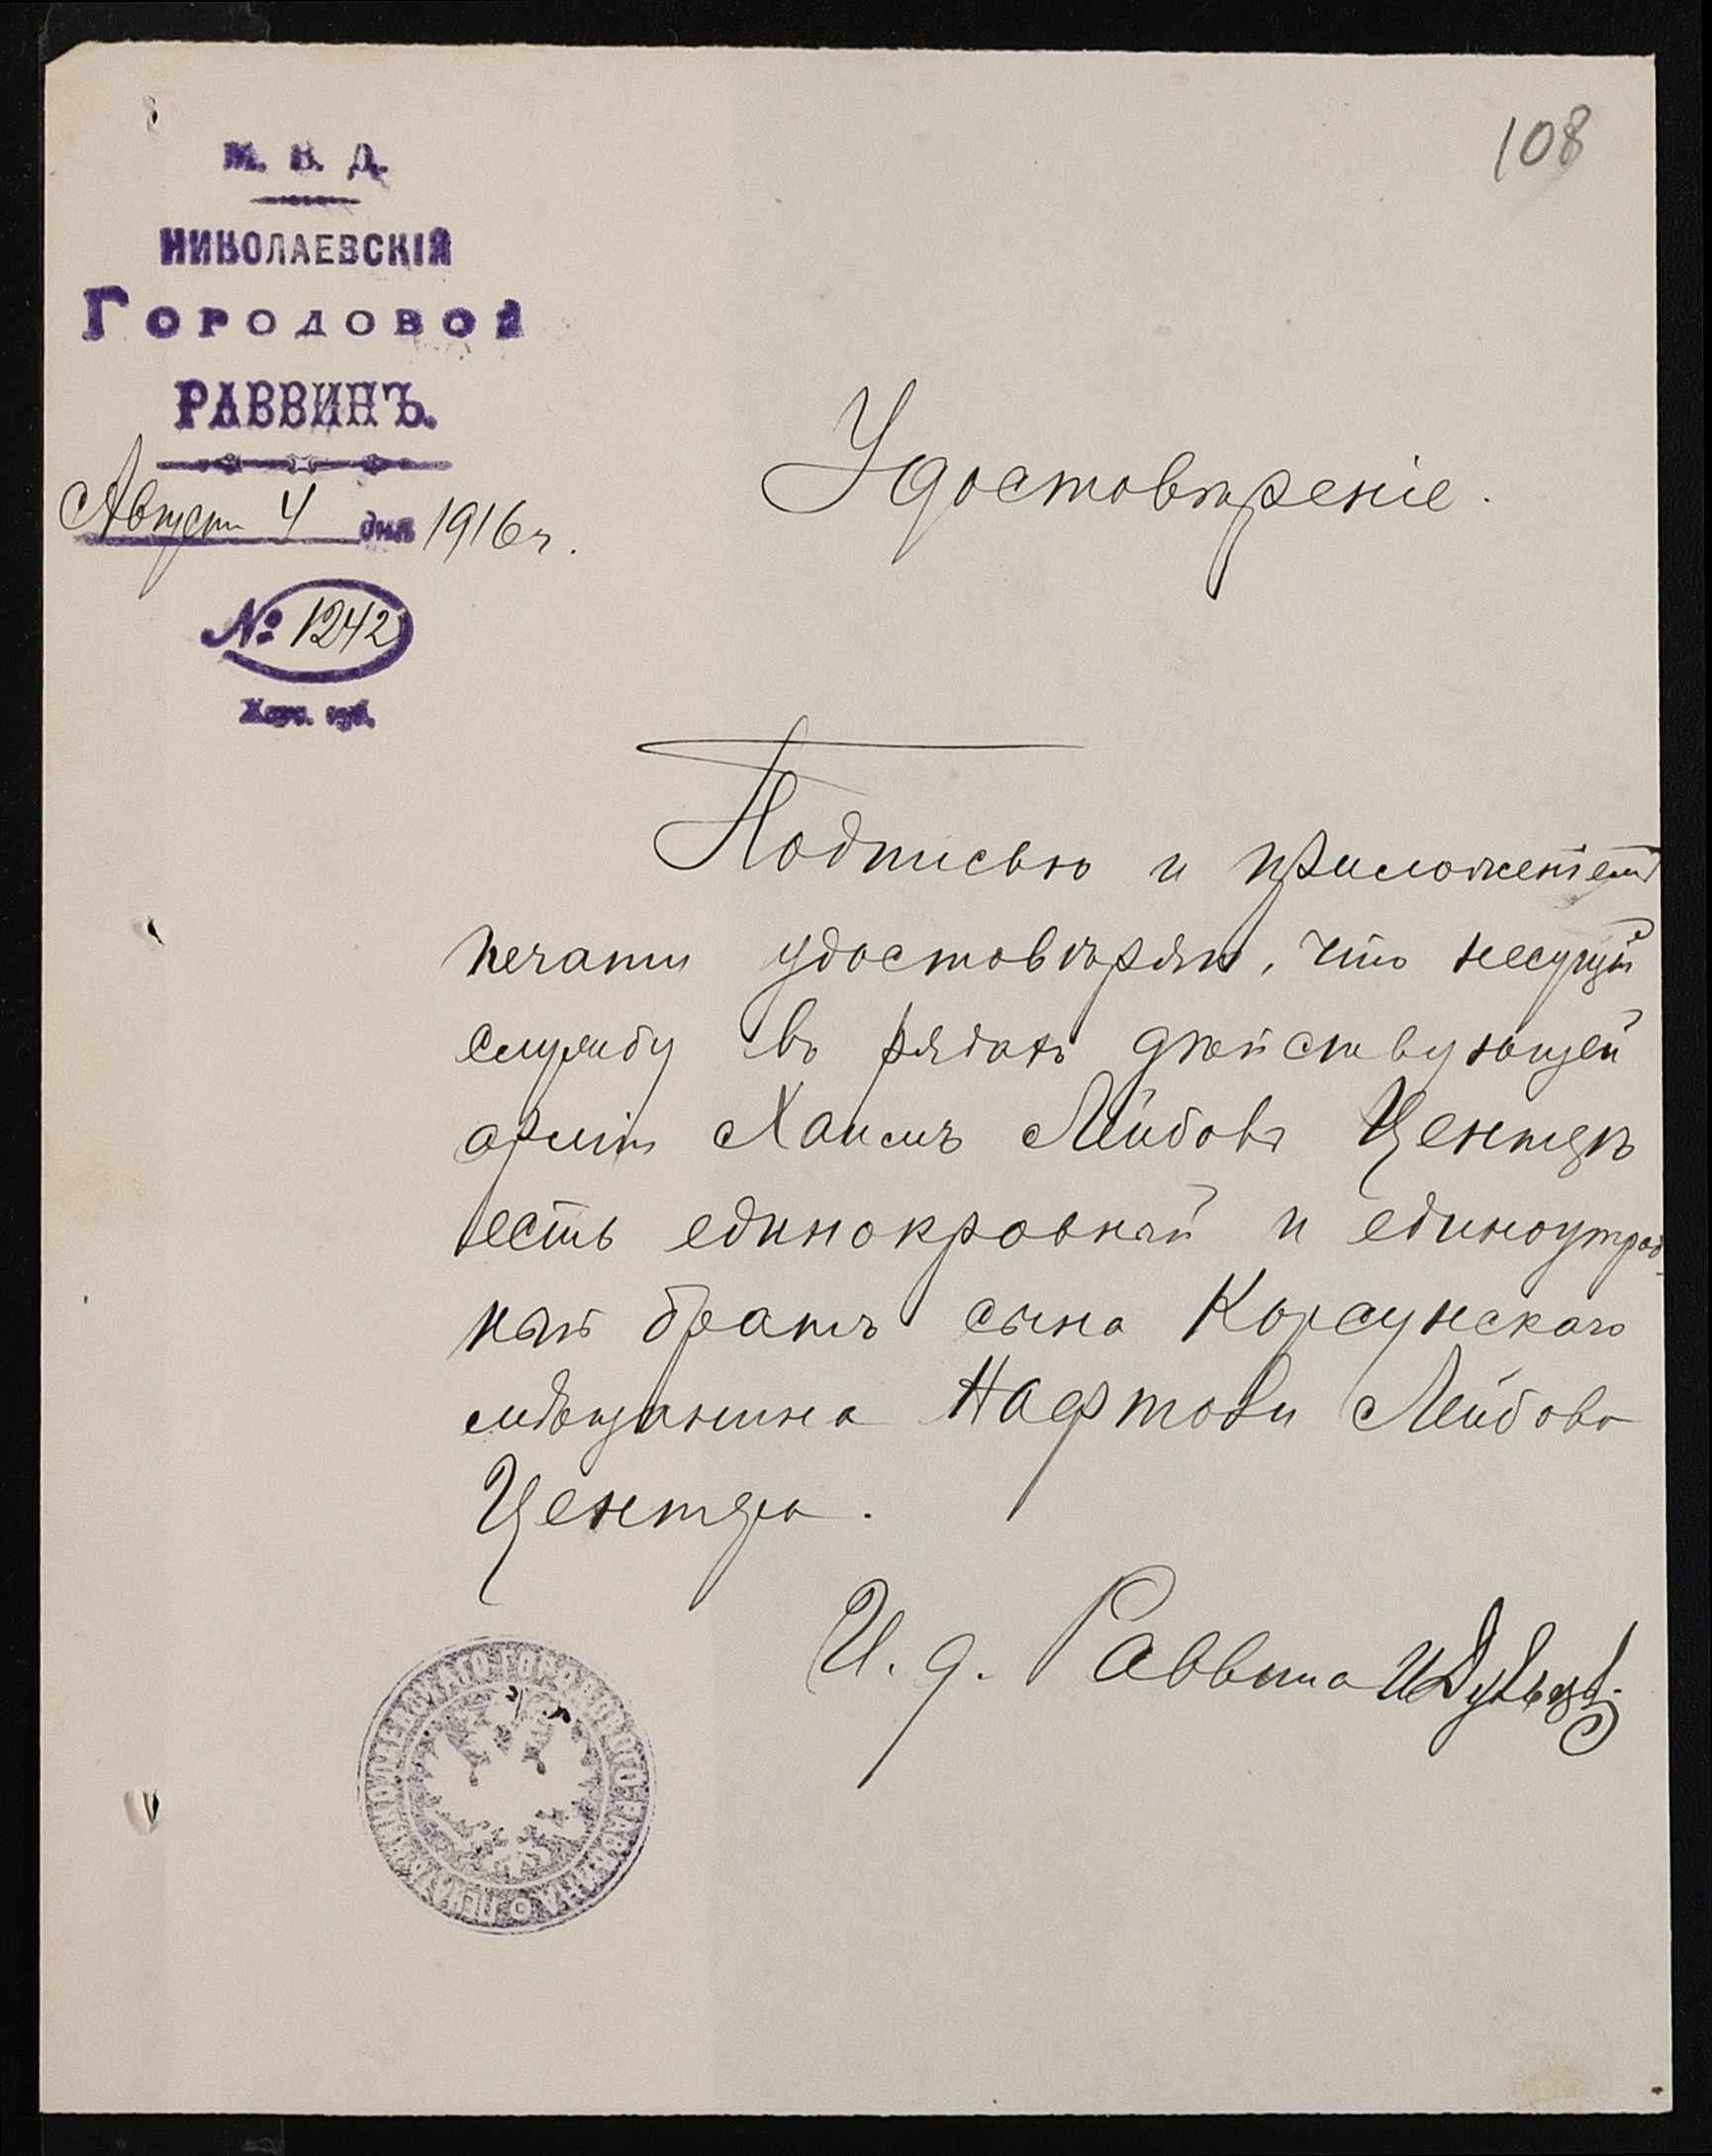 108
М. В. Д.
НИКОЛАЕВСКІЙ
ГОРОДОВОЙ
РАВВИНЪ.
Август 4 дня 1916 г.
№ 1242
Херс. губ.
Удостовѣреніе.
Подписью и приложеніемъ
печати удостовѣряю, что несущій
службу въ рядахъ дѣйствующей
арміи Хаимъ Лейбовъ Центеръ
есть единокровный и единоутроб-
ный братъ сына Корсунскаго
мѣщанина Нафтоли Лейбова
Центера.
И. д. Раввина
ПЕЧАТЬ НИКОЛАЕВСКАГО ГОРОДОВОГО РАВВИНА